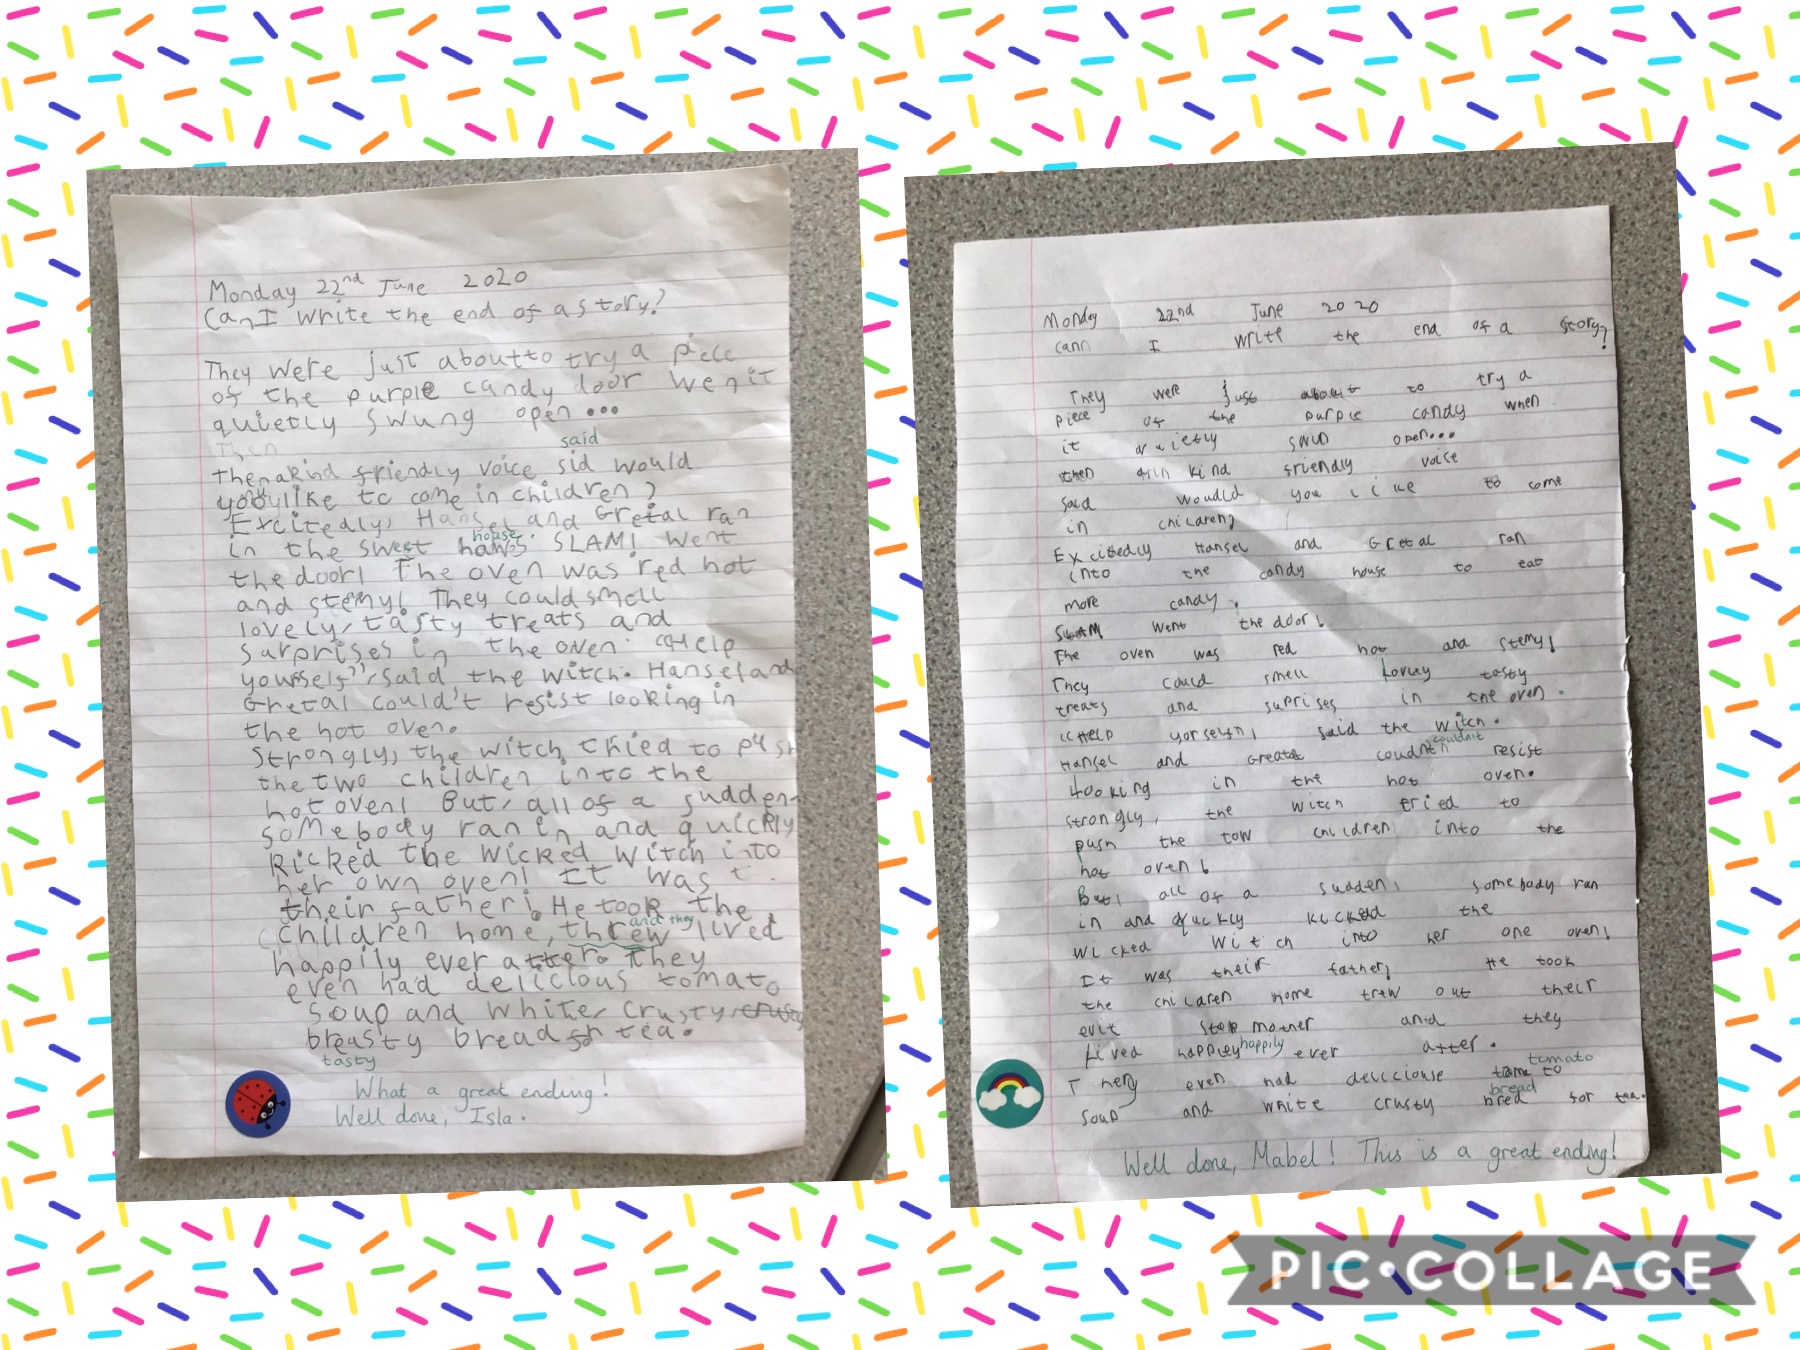 Monday 22nd June 2020
Can I write the end of a story?
They were just about to try a piece
of the purple candy door wen it
quietly swung open...
Then
said
then a kind friendly voice sid would
you like to come in children?
Excitedly, Hansel and Gretal ran
house
in the sweet SLAM! Went
the door! The oven was red hot
and stemy! They could smell
lovely, tasty treats and
surprises in the oven. "Help
yourself", said the witch. Hansel and
Gretal couldn't resist looking in
the hot oven.
Strongly, the witch tried to push
the two children into the
hot oven! But, all of a sudden
somebody ran in and quickly
kicked the wicked witch into
her own oven! It was
their father! He took the
and they
children home, threw lived
happily ever after. They
even had delicious tomato
soup and white, crusty, crusty
breasty bread for tea.
tasty
What a great ending!
Well done, Isla.
Monday 22nd June 2020
cann I write the end of a story?
They were just about to try a
piece of the purple candy when
it quietly swun open...
then kind friendly voice
said woudld you like to come
in children?
Excitedly Hansel and Gretal ran
into the candy house to eat
more candy.
SLAM went the door!
The oven was red hot and stemy!
They could smell lovley tasty
treats and suprises in the oven.
"Help said the witch.
couldn't
Hansel and resist
looking in the hot oven.
strongly, the witch tried to
push the tow children into the
hot oven!
But, all of a sudden, somebody ran
in and quckly kicked the
wicked witch into her one oven!
It was their father! He took
the children home trew out their
evit step mother and they
happily
Lived happley ever after.
tomato
They even had deliciouse
bread
soup and white crusty bred for tea.
Well done, Mabel! This is a great ending!
PIC•COLLAGE